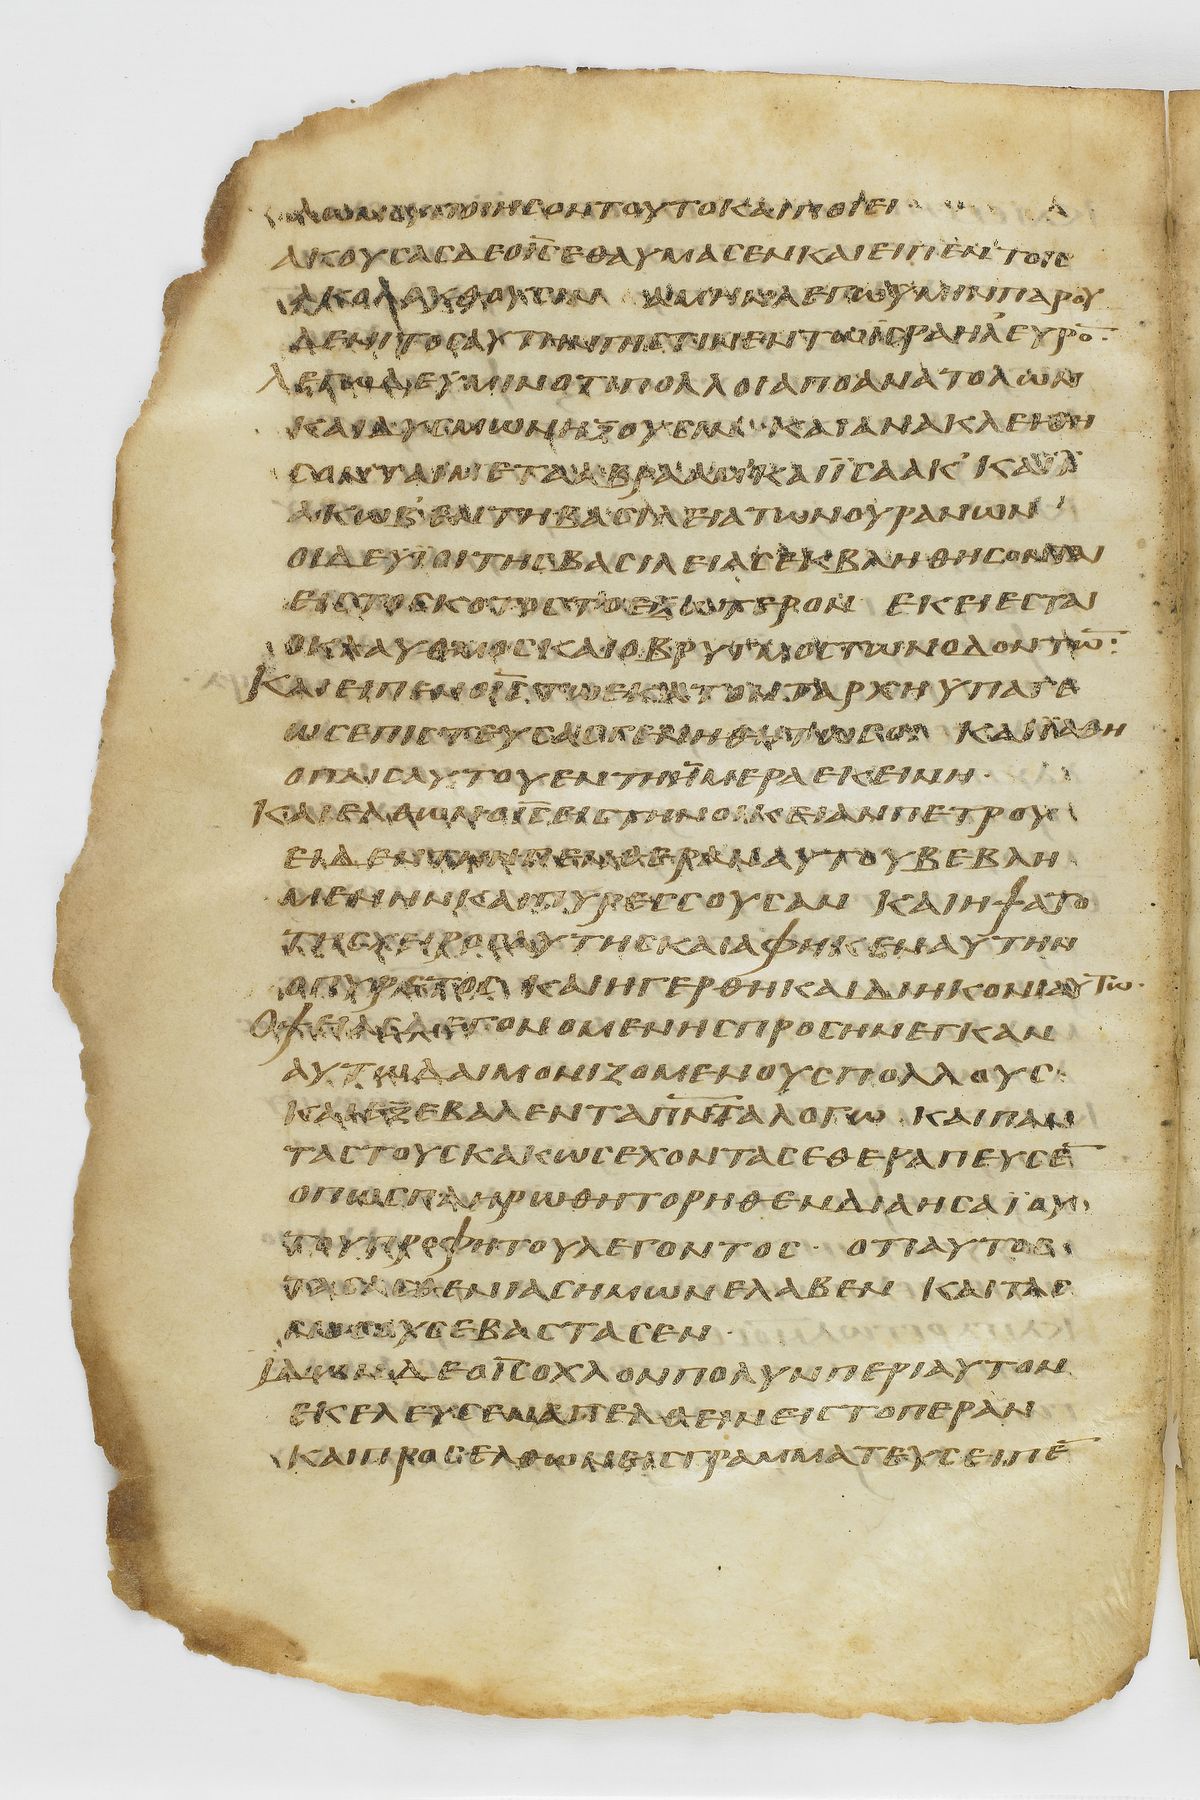 ΔΟΥΛΩΜΟΥΠΟΙΗCΟΝΤΟΥΤΟΚΑΙΠΟΙΕΙ
ΑΚΟΥCΑCΔΕΟΙ̅C̅ΕΘΑΥΜΑCΕΝΚΑΙΕΙΠΕΝΤΟΙC
ΑΚΟΛΟΥΘΟΥCΙΝ ΑΜΗΝΛΕΓΩΥΜΙΝΠΑΡΟΥ
ΔΕΝΙΤΟCΑΥΤΗΝΠΙCΤΙΝΕΝΤΩΙCΡΑΗΛΕΥΡΟ̅·
ΛΕΓΩΔΕΥΜΙΝΟΤΙΠΟΛΛΟΙΑΠΟΑΝΑΤΟΛΩΝ
ΚΑΙΔΥCΜΩΝΗΞΟΥCΙΝ ΚΑΙΑΝΑΚΛΙΘΗ
CΟΝΤΑΙΜΕΤΑΑΒΡΑΑΜΚΑΙΙCΑΑΚΚΑΙΙ
ΑΚΩΒΕΝΤΗΒΑCΙΛΕΙΑΤΩΝΟΥΡΑΝΩΝ
ΟΙΔΕΥΙΟΙΤΗCΒΑCΙΛΕΙΑCΕΚΒΛΗΘΗCΟΝΤΑΙ
ΕΙCΤΟCΚΟΤΟCΤΟΕΞΩΤΕΡΟΝ ΕΚΕΙΕCΤΑΙ
ΟΚΛΑΥΘΜΟCΚΑΙΟΒΡΥΓΜΟCΤΩΝΟΔΟΝΤΩ̅:
ΚΑΙΕΙΠΕΝΟΙ̅C̅ΤΩΕΚΑΤΟΝΤΑΡΧΗΥΠΑΓΕ
ΩCΕΠΙCΤΕΥCΑCΓΕΝΗΘΗΤΩCΟΙ ΚΑΙΙΑΘΗ
ΟΠΑΙCΑΥΤΟΥΕΝΤΗΗΜΕΡΑΕΚΕΙΝΗ·
ΚΑΙΕΛΘΩΝΟΙ̅C̅ΕΙCΤΗΝΟΙΚΕΙΑΝΠΕΤΡΟΥ
ΕΙΔΕΝΤΗΝΠΕΝΘΕΡΑΝΑΥΤΟΥΒΕΒΛΗ
ΜΕΝΗΝΚΑΙΠΥΡΕCCΟΥCΑΝ ΚΑΙΗΨΑΤΟ
ΤΗCΧΕΙΡΟCΑΥΤΗCΚΑΙΑΦΗΚΕΝΑΥΤΗΝ
ΟΠΥΡΕΤΟC ΚΑΙΗΓΕΡΘΗΚΑΙΔΙΗΚΟΝΙΑΥΤΩ·
ΟΨΕΙΑCΔΕΓΕΝΟΜΕΝΗCΠΡΟCΗΝΕΓΚΑΝ
ΑΥΤΩΔΑΙΜΟΝΙΖΟΜΕΝΟΥCΠΟΛΛΟΥC
ΚΑΙΕΞΕΒΑΛΕΝΤΑΠ̅Ν̅Τ̅Α̅ΛΟΓΩ ΚΑΙΠΑΝ
ΤΑCΤΟΥCΚΑΚΩCΕΧΟΝΤΑCΕΘΕΡΑΠΕΥCΕ̅
ΟΠΩCΠΛΗΡΩΘΗΤΟΡΗΘΕΝΔΙΑΗCΑΙΟΥ
ΤΟΥΠΡΟΦΗΤΟΥΛΕΓΟΝΤΟC· ΟΤΙΑΥΤΟC
ΤΑCΑCΘΕΝΙΑCΗΜΩΝΕΛΑΒΕΝ ΚΑΙΤΑC
ΝΟCΟΥCΕΒΑCΤΑCΕΝ·
ΙΔΩΝΔΕΟΙ̅C̅ΟΧΛΟΝΠΟΛΥΝΠΕΡΙΑΥΤΟΝ
ΕΚΕΛΕΥCΕΝΑΠΕΛΘΕΙΝΕΙCΤΟΠΕΡΑΝ
ΚΑΙΠΡΟCΕΛΘΩΝΕΙCΓΡΑΜΜΑΤΕΥCΕΙΠΕ̅